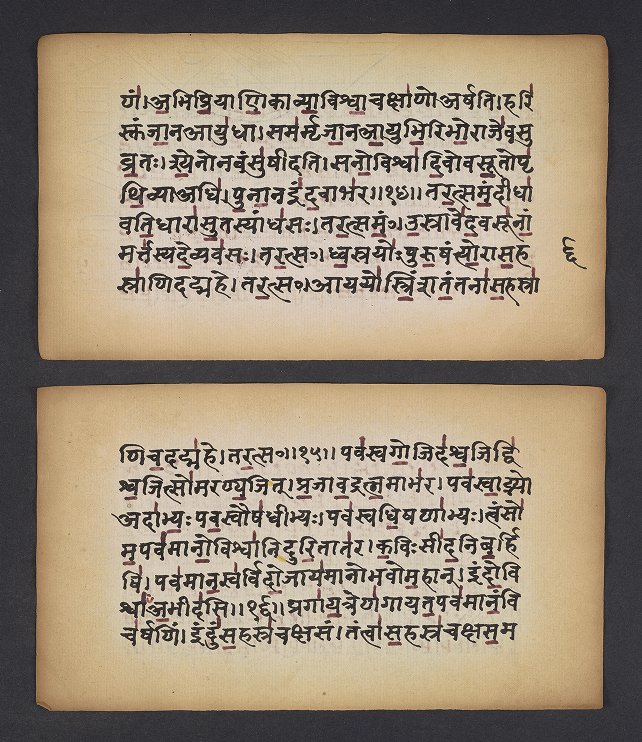 णं। अभिप्रियाणिकाव्याविश्वाचक्षाणोअर्षति। हरि
स्तुंजानआयुधा। समर्मृजानआयुभिरिभोराजेवसु
व्रतः। श्येनोनवंसुषीदति। सनोविश्वादिवोवसूतोपृ
थिव्याअधि। पुनानइंदवाभर॥१४॥ तरत्समंदीधा
वतिधारासुतस्यांधसः। तरत्समं०। उस्रावेदवसूनां
मर्त्तस्यदेव्यवसः। तरत्स०। ध्वस्रयोःपुरुषंत्योरासह
स्राणिदद्महे। तरत्स०। आययोस्त्रिंशतंतनासहस्रा
णिचदद्महे। तरत्स०॥१५॥ पवस्वगोजिदश्वजिद्वि
श्वजित्सोमरण्यजित्। प्रजावद्रत्नमाभर। पवस्वाद्भ्यो
अदाभ्यः पवस्वौषधीभ्यः। पवस्वधिषणाभ्यः। त्वंसो
मपवमानोविश्वानिदुरितातर। कविःसीदनिबर्हि
षि। पवमानस्वर्विदोजायमानोभवोमहान्। इंदोवि
श्वाँअभीदसि॥१६॥ प्रगायत्रेणगायतपवमानंवि
चर्षणिं। इंदुंसहस्रचक्षसं। तंत्वासहस्रचक्षसम